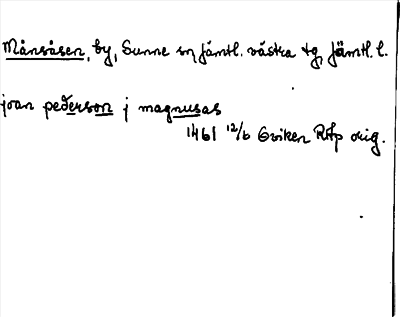 Månsåsen, by, Sunne sn, Jämtl. västra tg, Jämtl. l.
joan pederson j magnusas
1461 12/6 Oviken RAp orig.